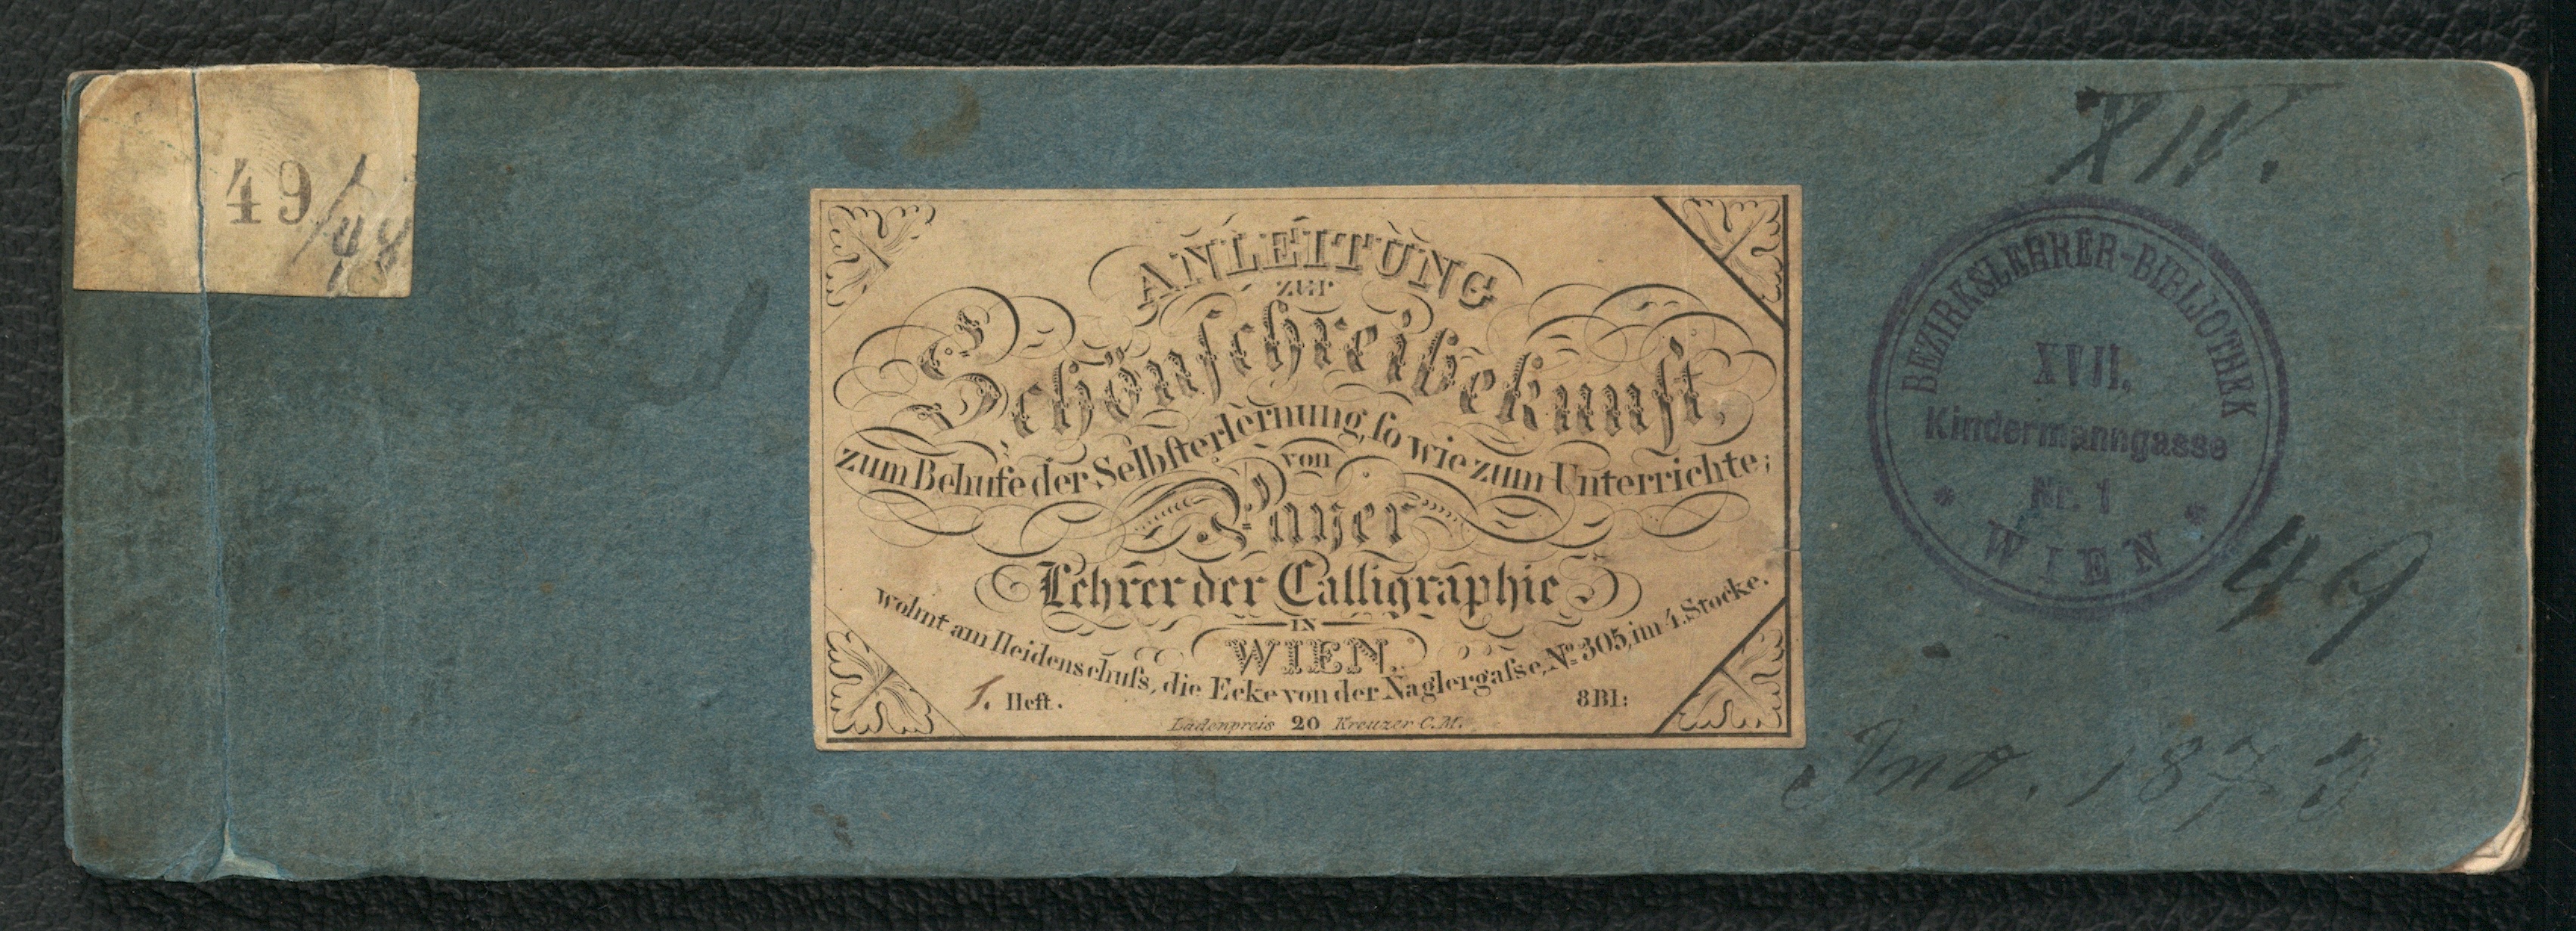 49/48
ANLEITUNG
zur
Schönſchreibekunſt,
zum Behufe der Selbſterlernung, ſo wie zum Unterrichte;
von
Payer
Lehrer der Calligraphie
IN
WIEN.
wohnt am Heidenschuſs, die Ecke von der Naglergaſse, No. 305, im 4. Stocke.
1. Heft.
8 Bl:
Ladenpreis 20 Kreuzer C.M.
BEZIRKSLEHRER-BIBLIOTHEK
XVII.
Kindermanngasse
Nr. 1
* WIEN *
49